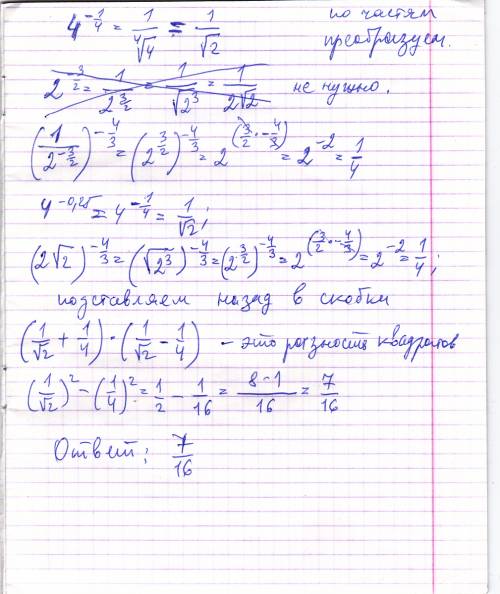 4^{-\frac{1}{4}} = \frac{1}{\sqrt[4]{4}} = \frac{1}{\sqrt{2}} по частям преобразуем.
2^{-\frac{3}{2}} = \frac{1}{2^{\frac{3}{2}}} = \frac{1}{\sqrt{2^3}} = \frac{1}{2\sqrt{2}} не нужно.
(\frac{1}{2^{-\frac{3}{2}}})^{-\frac{4}{3}} = (2^{\frac{3}{2}})^{-\frac{4}{3}} = 2^{(\frac{3}{2} \cdot -\frac{4}{3})} = 2^{-2} = \frac{1}{4}
4^{-0,25} = 4^{-\frac{1}{4}} = \frac{1}{\sqrt{2}};
(2\sqrt{2})^{-\frac{4}{3}} = (\sqrt{2^3})^{-\frac{4}{3}} = (2^{\frac{3}{2}})^{-\frac{4}{3}} = 2^{(\frac{3}{2} \cdot -\frac{4}{3})} = 2^{-2} = \frac{1}{4};
подставляем назад в скобки
(\frac{1}{\sqrt{2}} + \frac{1}{4}) \cdot (\frac{1}{\sqrt{2}} - \frac{1}{4}) - это разность квадратов
(\frac{1}{\sqrt{2}})^2 - (\frac{1}{4})^2 = \frac{1}{2} - \frac{1}{16} = \frac{8-1}{16} = \frac{7}{16}
Ответ: \frac{7}{16}